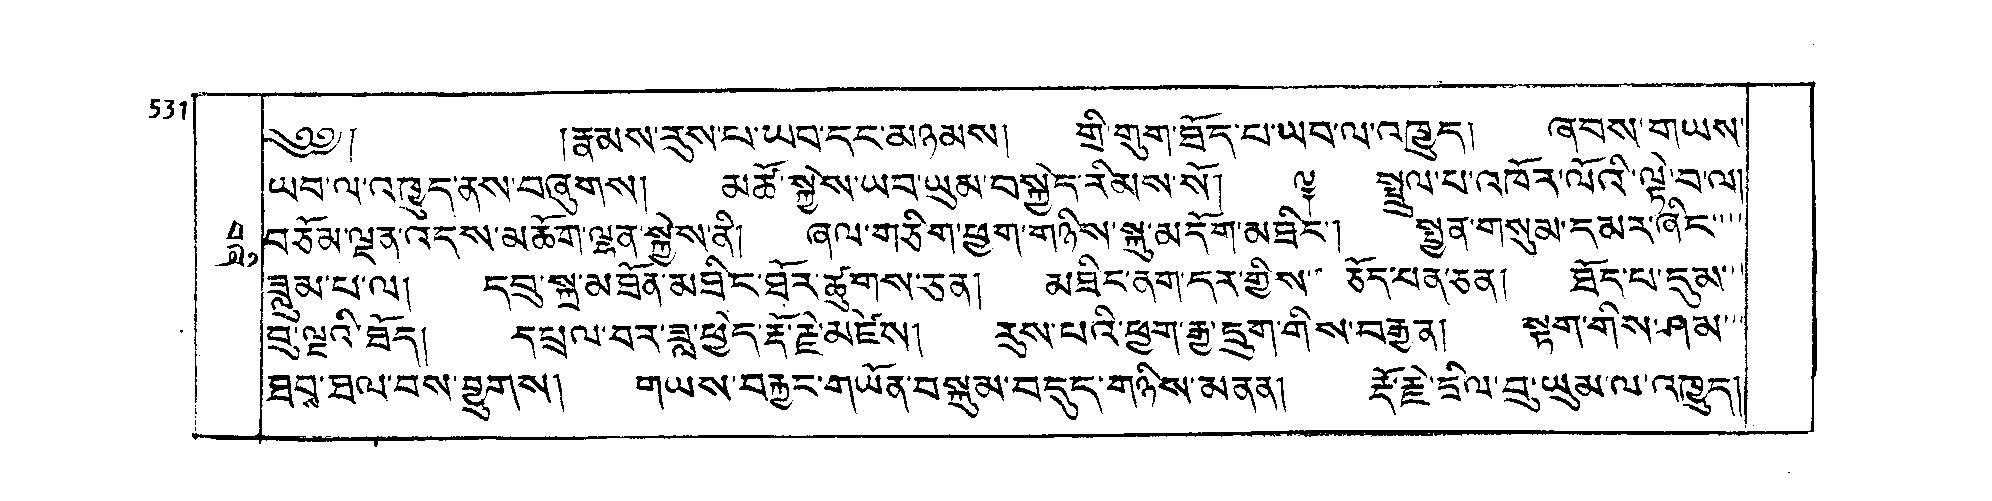 531
༄༅། །རྣམས་རུས་པ་ཡབ་དང་མཉམས། གྲི་གུག་ཐོད་པ་ཡབ་ལ་འཁྱུད། ཞབས་གཡས་
ཡབ་ལ་འཁྱུད་ནས་བཞུགས། མཚོ་སྐྱེས་ཡབ་ཡུམ་བསྐྱེད་རིམས་སོ། ༔ སྤྲུལ་པ་འཁོར་ལོའི་ལྟེ་བ་ལ།
བཅོམ་ལྡན་འདས་མཆོག་ལྡན་སྐྱེས་ནི། ཞལ་གཅིག་ཕྱག་གཉིས་སྐུ་མདོག་མཐིང་། སྤྱན་གསུམ་དམར་ཞིང་
ཟླུམ་པ་ལ། དབུ་སྐྲ་མཐོན་མཐིང་ཐོར་ཚུགས་ཅན། མཐིང་ནག་དར་གྱིས་ ཅོད་པན་ཅན། ཐོད་པ་དུམ་
བུ་ལྔའི་ཐོད། དཔྲལ་བར་ཟླ་ཕྱེད་རྡོ་རྗེ་མཛེས། རུས་པའི་ཕྱག་རྒྱ་དྲུག་གིས་བརྒྱན། སྟག་གིས་ཤམ་
ཐབྭ་ཐལ་བས་བྱུགས། གཡས་བརྐྱང་གཡོན་བསྐུམ་བདུད་གཉིས་མནན། རྡོ་རྗེ་དྲིལ་བུ་ཡུམ་ལ་འཁྱུད།